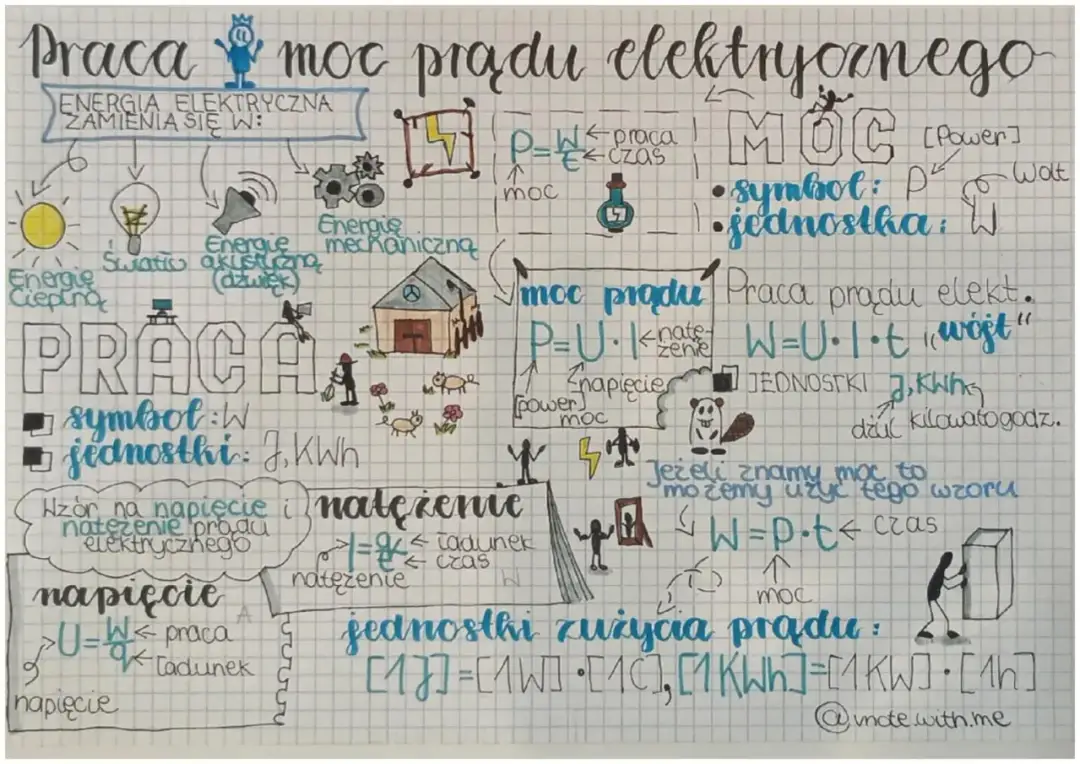 Praca i moc prądu elektrycznego
ENERGIA ELEKTRYCZNA
ZAMIENIA SIĘ W:
Energię
Cieplną
Światło
Energię
akustyczną
(dźwięk)
Energię
mechaniczną
P=W/t
praca
czas
moc
MOC
[Power]
symbol: P
jednostka: W
Wolt
PRACA
symbol: W
jednostki: J, KWh
moc prądu
P=U·I
natę-
żenie
napięcie
[power]
moc
Praca prądu elekt.
W=U·I·t „wójt"
JEDNOSTKI J, KWh
dżul
kilowatogodz.
Jeżeli znamy moc to
możemy użyć tego wzoru
W=P·t
czas
moc
Wzór na napięcie i
natężenie prądu
elektrycznego
natężenie
I=q/t
ładunek
czas
natężenie
napięcie
U=W/q
praca
ładunek
napięcie
jednostki zużycia prądu:
[1J]=[1W]·[1C], [1KWh]=[1KW]·[1h]
@vnote.with.me